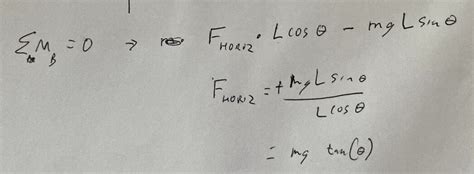 ΣM_B = 0 → F_HORIZ · L cos θ − mg L sin θ
F_HORIZ = + mg L sin θ / L cos θ
= mg tan(θ)